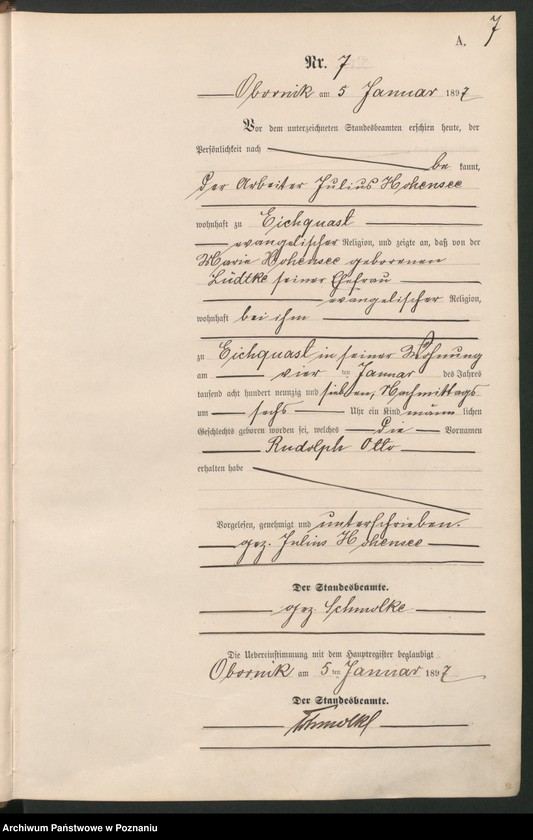 7
A.
Nr. 7
Obornik am 5 Januar 1897
Vor dem unterzeichneten Standesbeamten erschien heute, der
Persönlichkeit nach
be kannt,
der Arbeiter Julius Hohensee
wohnhaft zu Eichquast
evangelischer Religion, und zeigte an, daß von der
Marie Hohensee geborenen
Lüdtke seiner Ehefrau
evangelischer Religion,
wohnhaft bei ihm
zu Eichquast in seiner Wohnung
am vier ten Januar des Jahres
tausend acht hundert neunzig und sieben, Nachmittags
um sechs Uhr ein Kind männ lichen
Geschlechts geboren worden sei, welches die Vornamen
Rudolph Otto
erhalten habe
Vorgelesen, genehmigt und unterschrieben.
gez. Julius Hohensee
Der Standesbeamte.
gez. Schmolke
Die Uebereinstimmung mit dem Hauptregister beglaubigt
Obornik am 5 ten Januar 1897
Der Standesbeamte.
Schmolke
Archiwum Państwowe w Poznaniu